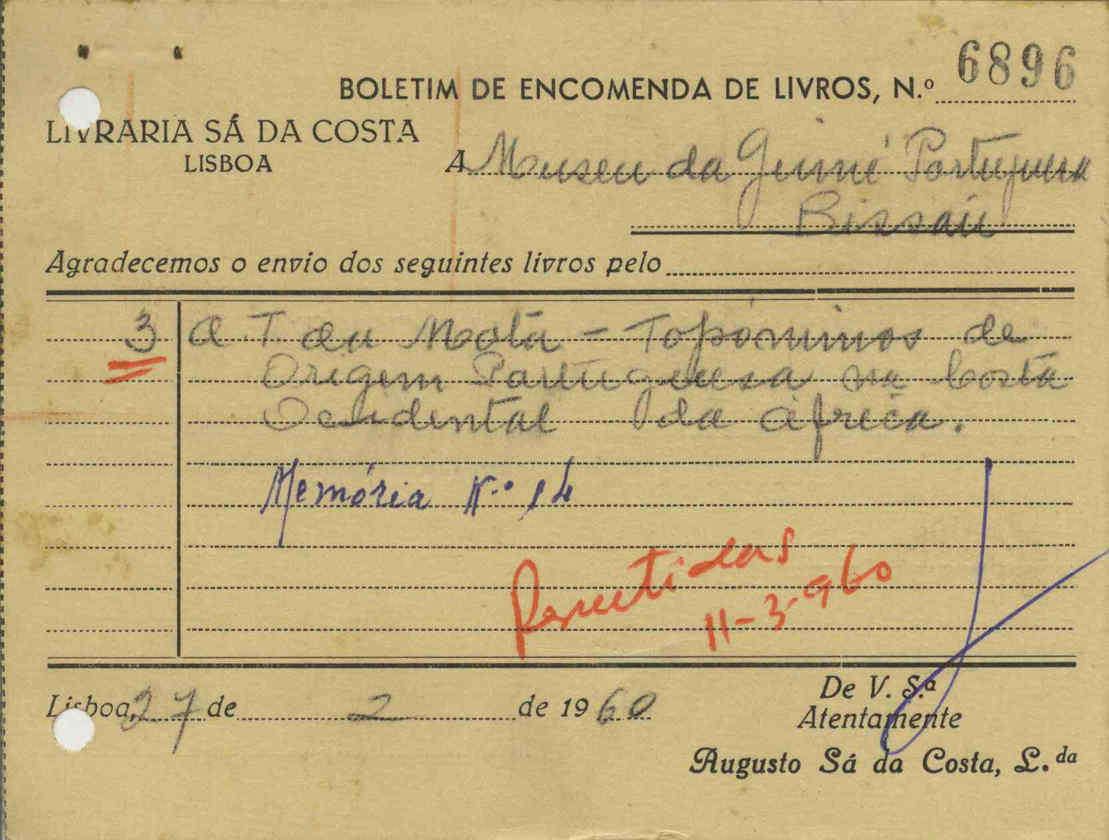 BOLETIM DE ENCOMENDA DE LIVROS, N.º 6896
LIVRARIA SÁ DA COSTA
LISBOA
A Museu da Guiné Portuguesa
Bissau
Agradecemos o envio dos seguintes livros pelo
3 A. T. da Mota - Topónimos de
Origem Portuguesa na Costa
Ocidental da África.
Memória N.º 14
Remetidas
11-3-960
Lisboa, 27 de 2 de 1960
De V. S.ª
Atentamente
Augusto Sá da Costa, L.da